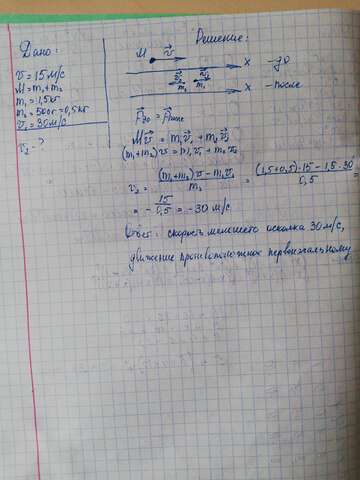 Дано:
v = 15 м/с
M = m₁ + m₂
m₁ = 1,5 кг
m₂ = 500 г = 0,5 кг
v₁ = 30 м/с
v₂ - ?
Решение:
M v⃗
x - до
v⃗₂ v⃗₁
m₂ m₁ x - после
P⃗до = P⃗после
M v⃗ = m₁v⃗₁ + m₂v⃗₂
(m₁+m₂)v = m₁v₁ + m₂v₂
v₂ = ((m₁+m₂)v - m₁v₁)/m₂ = ((1,5+0,5)·15 - 1,5·30)/0,5 =
= - 15/0,5 = -30 м/с
Ответ: скорость меньшего осколка 30 м/с,
движение противоположно первоначальному